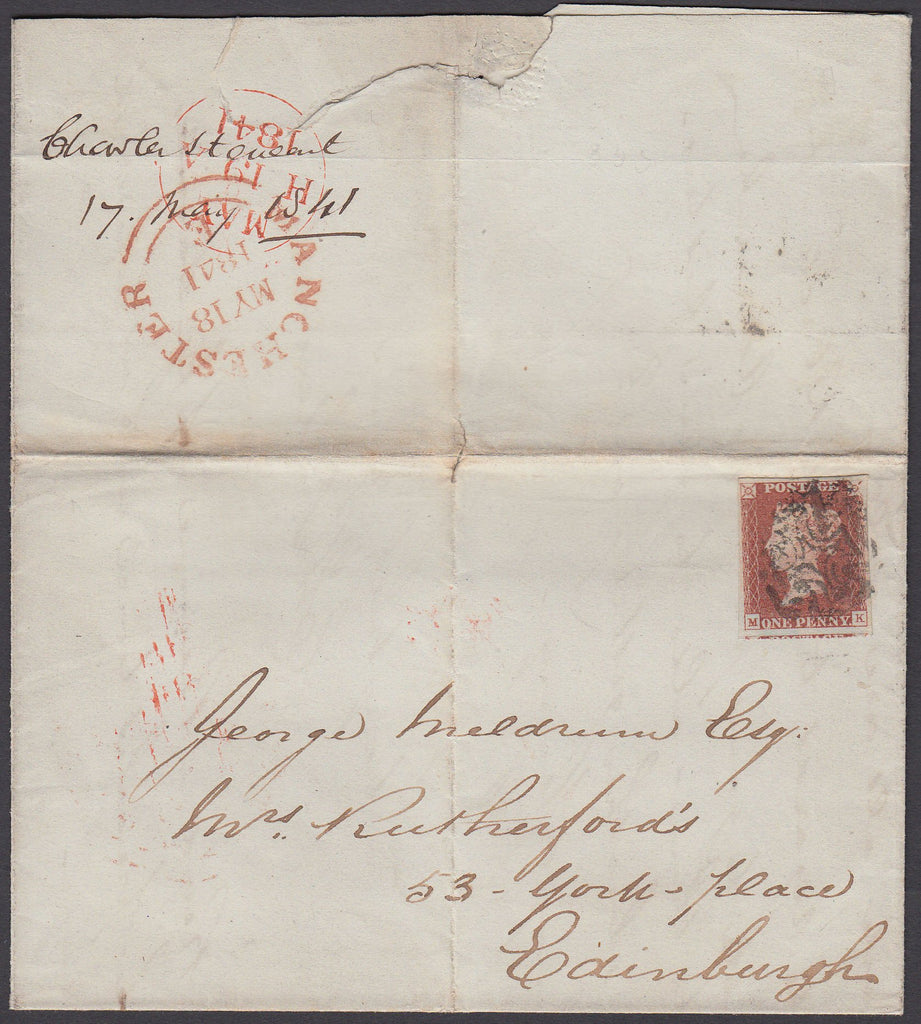 Charles Stewart
17. May 1841
1841
19
MAY
H
MANCHESTER
MY 18
1841
POSTAGE
M ONE PENNY K
George Meldrum Esq:
Mrs. Rutherford's
53 - York - place
Edinburgh